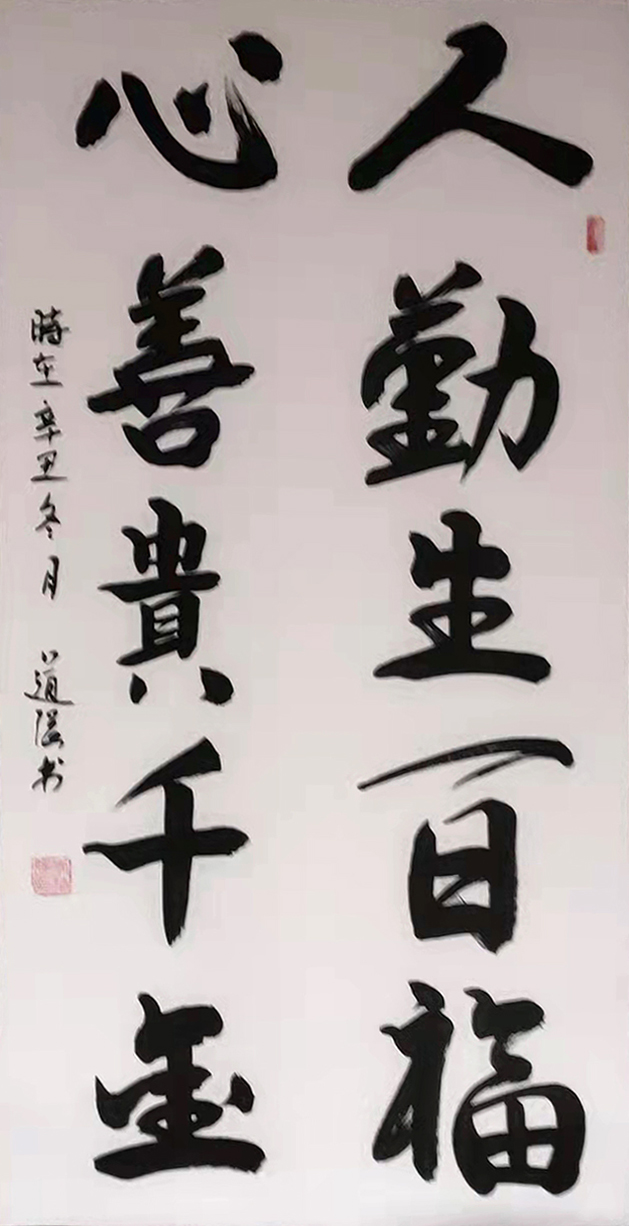 人勤生百福
心善貴千金
時在辛丑冬月 道强书